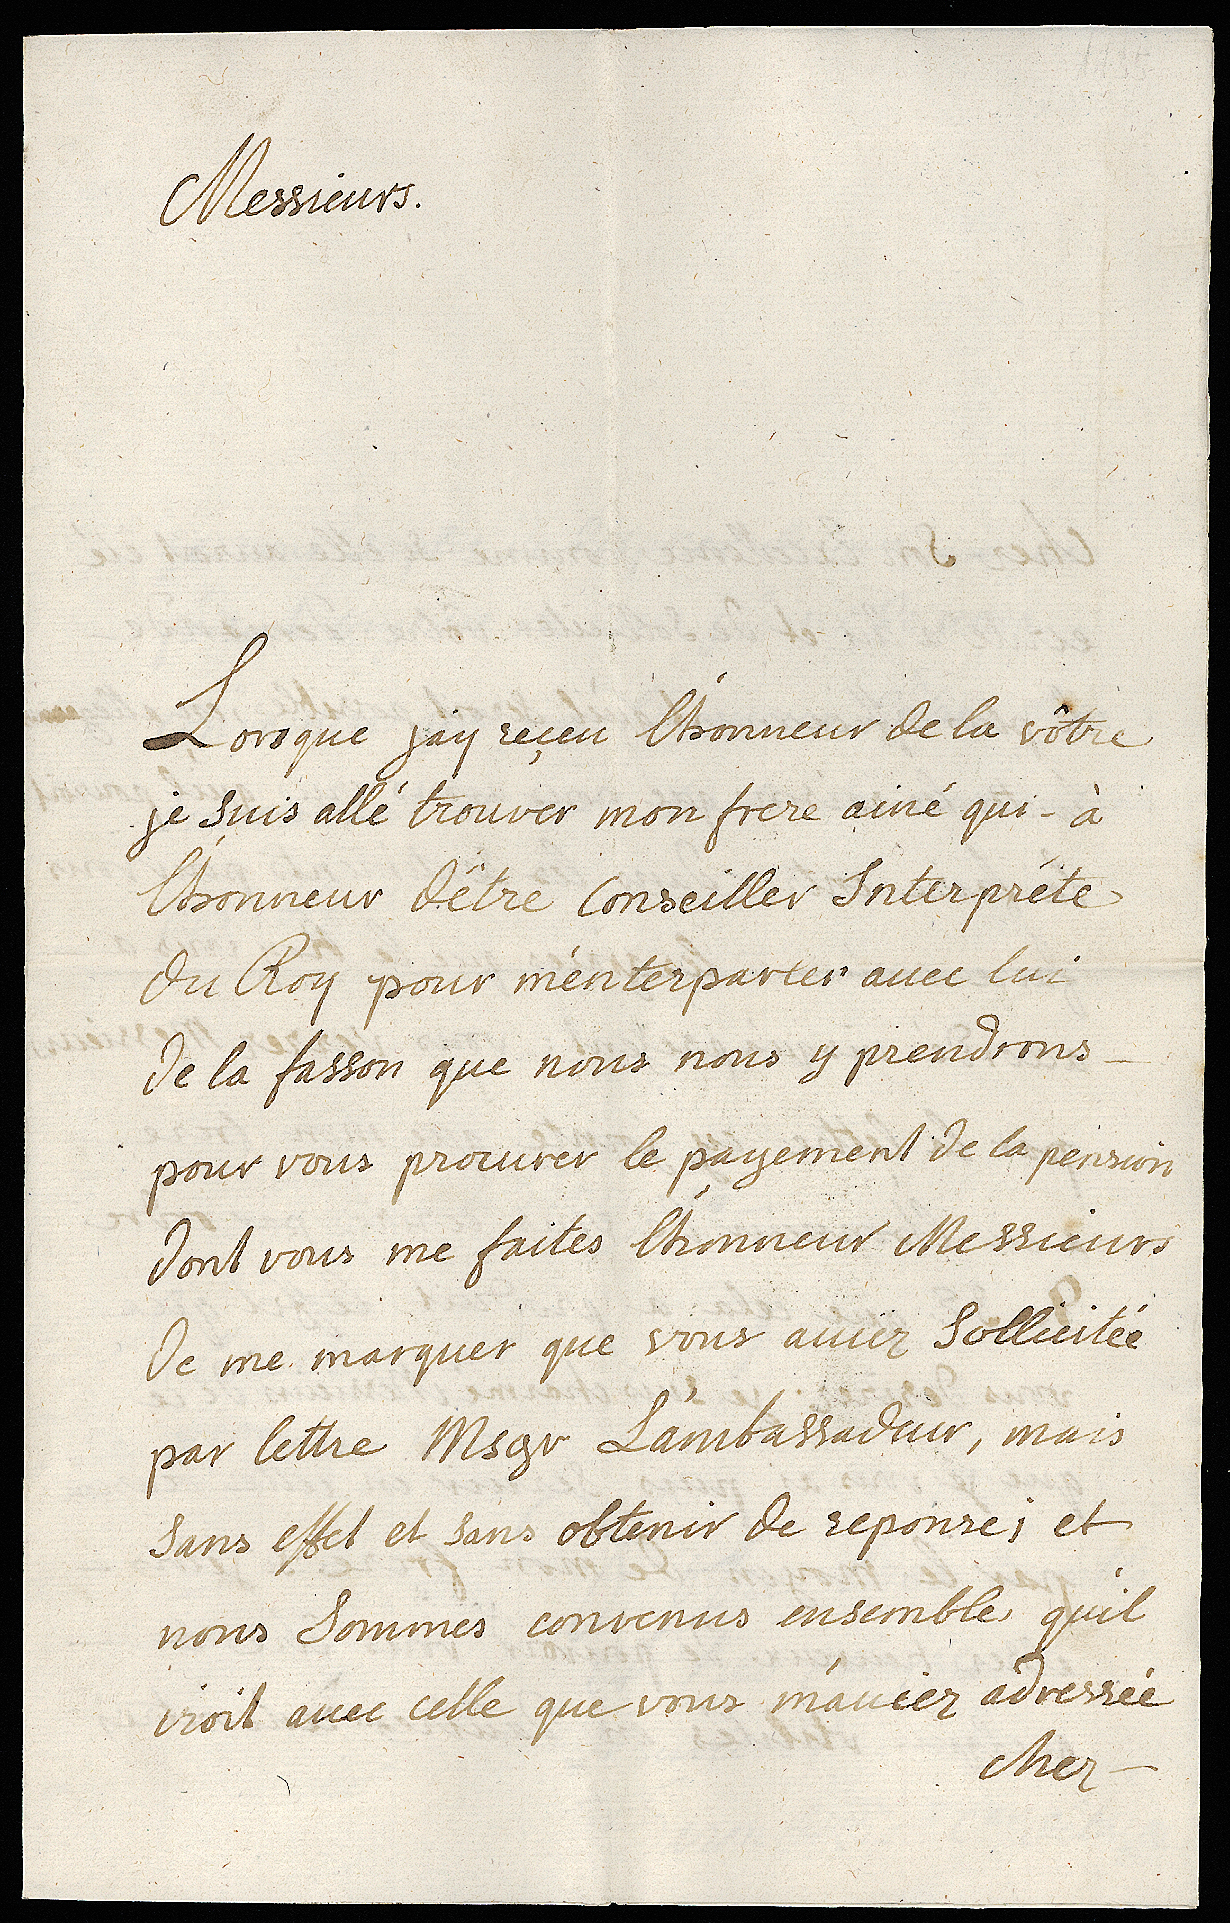 Messieurs.
Lorsque jay reçeu l'honneur de la vôtre
je suis allé trouver mon frere ainé qui - à
l'honneur d'être Conseiller Interpréte
du Roy pour m'énterparler avec lui
de la fasson que nous nous y prendrons -
pour vous procurer le payement de la pension
dont vous me faites l'honneur Messieurs
de me marquer que vous aviez Sollicitée
par lettre Msgr L'ambassadeur, mais
sans effet et sans obtenir de reponse; et
nous Sommes convenus ensemble qu'il
iroit avec celle que vous m'aviez adressée
chez -